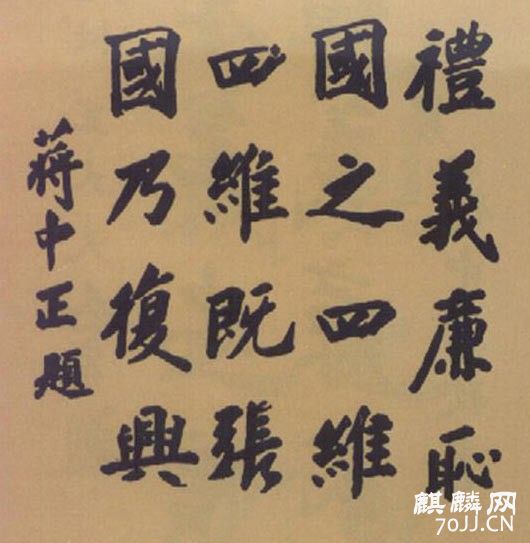 禮義廉恥
國之四維
四維既張
國乃復興
蔣中正題
麒麟网
70JJ.CN